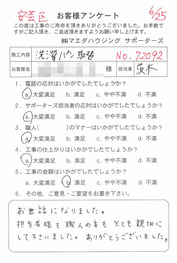 安芸区
6/25
お客様アンケート
この度は工事のご用命を頂きありがとうございました。お手数ですが
ご記入頂き、ご返送頂きますようお願い申し上げます。
㈱マエダハウジング サポーターズ
施工内容 洗濯パン取替 No.72092
お客様名 様 担当者 茨木
1. 電話の応対はいかがでしたでしょうか?
a. 大変満足 b. 満足 c. やや不満 d. 不満
2. サポーターズ担当者の応対はいかがでしたでしょうか?
a. 大変満足 b. 満足 c. やや不満 d. 不満
3. 職人( )のマナーはいかがでしたでしょうか?
a. 大変満足 b. 満足 c. やや不満 d. 不満
4. 工事の仕上がりはいかがでしたでしょうか?
a. 大変満足 b. 満足 c. やや不満 d. 不満
5. 工事の金額はいかがでしたでしょうか?
a. 大変満足 b. 満足 c. やや不満 d. 不満
6. その他、ご意見・ご要望をお書き下さい。
お世話になりました。
担当者様も職人の方もとても親切に
して下さいました。ありがとうございました。